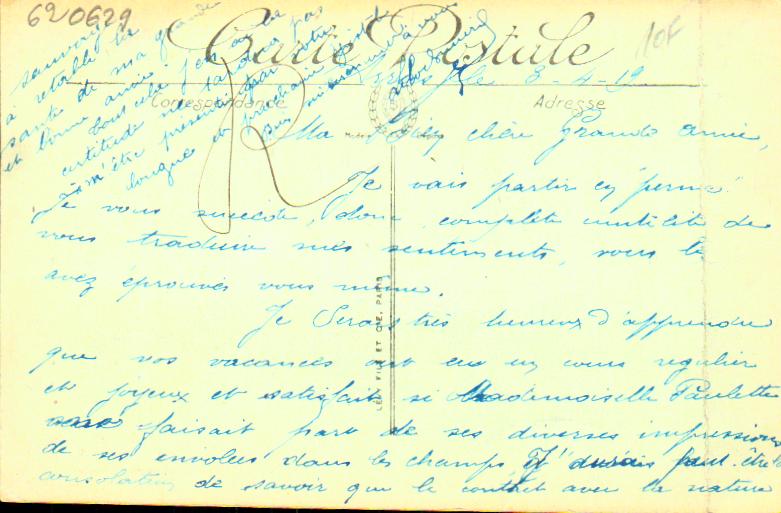 620629
10F
Carte Postale
Correspondance
Adresse
8-4-19
Ma bien chère Grande amie,
Je vais partir en "perme"
Je vous succède, donc complète inutilité de
vous traduire mes sentiments, vous les
avez éprouvés vous même.
Je serais très heureux d'apprendre
que vos vacances ont eu un cours régulier
et joyeux et satisfait si Mademoiselle Paulette
vous faisait part de ses diverses impressions
de ses envolées dans les champs, J'aurais peut-être la
consolation de savoir que le contact avec la nature
a
rétabli la
santé de ma grande
et bonne amie.
certitude ne tardera pas
à m'être présenté par votre
longue et prochaine
LEVY FILS ET CIE, PARIS